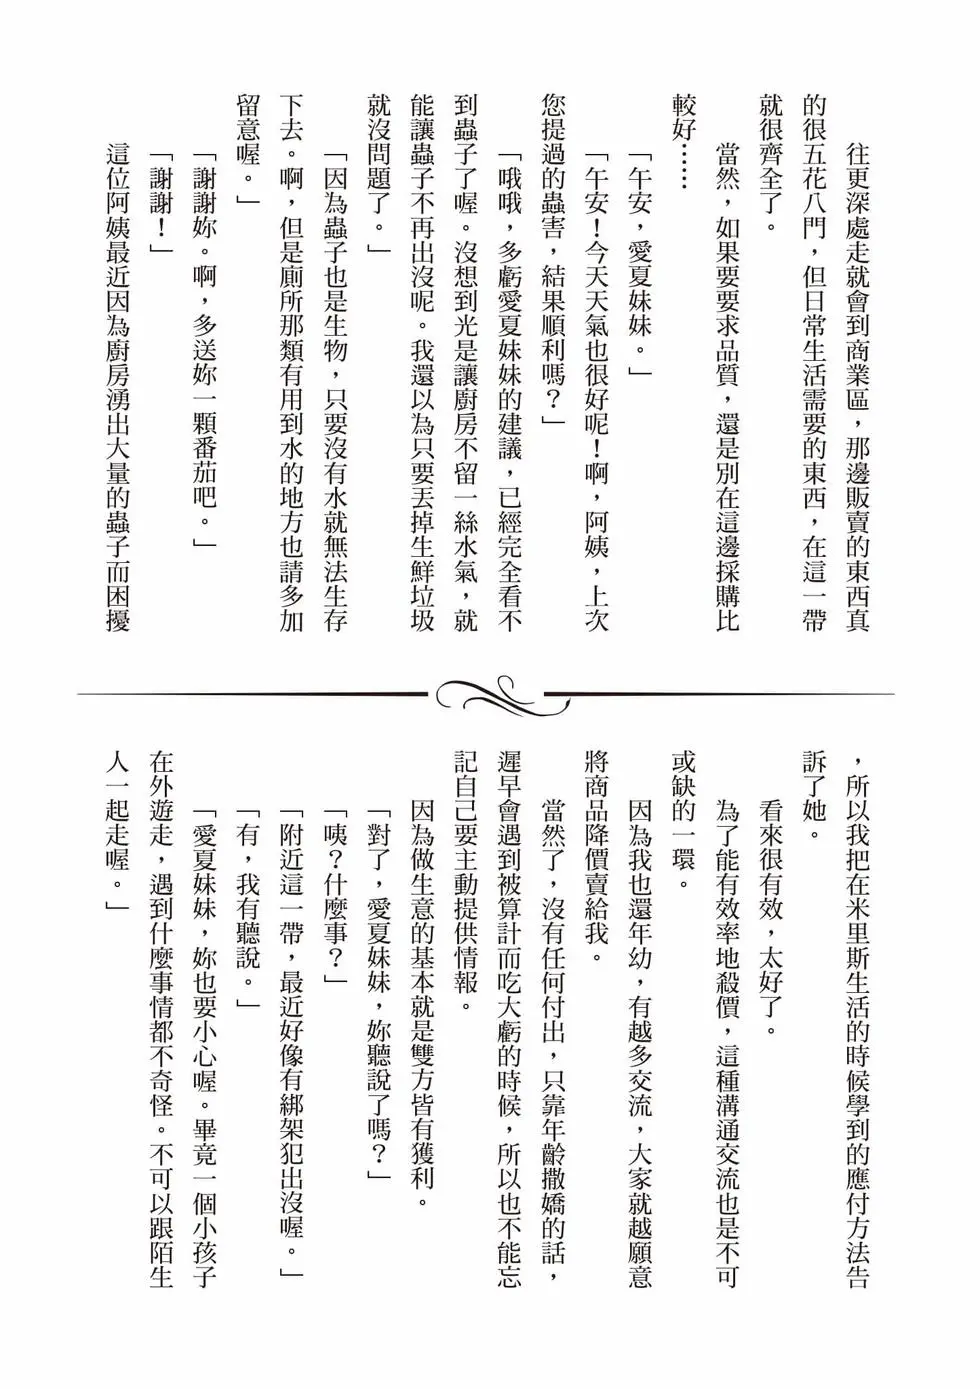 往更深處走就會到商業區，那邊販賣的東西真
的很五花八門，但日常生活需要的東西，在這一帶
就很齊全了。
當然，如果要要求品質，還是別在這邊採購比
較好……
「午安，愛夏妹妹。」
「午安！今天天氣也很好呢！啊，阿姨，上次
您提過的蟲害，結果順利嗎？」
「哦哦，多虧愛夏妹妹的建議，已經完全看不
到蟲子了喔。沒想到光是讓廚房不留一絲水氣，就
能讓蟲子不再出沒呢。我還以為只要丟掉生鮮垃圾
就沒問題了。」
「因為蟲子也是生物，只要沒有水就無法生存
下去。啊，但是廁所那類有用到水的地方也請多加
留意喔。」
「謝謝妳。啊，多送妳一顆番茄吧。」
「謝謝！」
這位阿姨最近因為廚房湧出大量的蟲子而困擾
，所以我把在米里斯生活的時候學到的應付方法告
訴了她。
看來很有效，太好了。
為了能有效率地殺價，這種溝通交流也是不可
或缺的一環。
因為我也還年幼，有越多交流，大家就越願意
將商品降價賣給我。
當然了，沒有任何付出，只靠年齡撒嬌的話，
遲早會遇到被算計而吃大虧的時候，所以也不能忘
記自己要主動提供情報。
因為做生意的基本就是雙方皆有獲利。
「對了，愛夏妹妹，妳聽說了嗎？」
「咦？什麼事？」
「附近這一帶，最近好像有綁架犯出沒喔。」
「有，我有聽說。」
「愛夏妹妹，妳也要小心喔。畢竟一個小孩子
在外遊走，遇到什麼事情都不奇怪。不可以跟陌生
人一起走喔。」